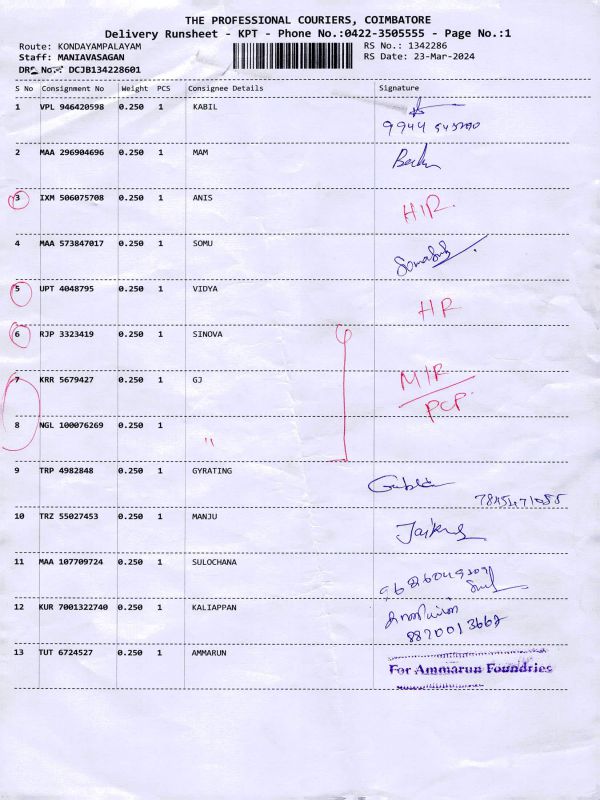 THE PROFESSIONAL COURIERS, COIMBATORE
Delivery Runsheet - KPT - Phone No.:0422-3505555 - Page No.:1
Route: KONDAYAMPALAYAM RS No.: 1342286
Staff: MANIAVASAGAN RS Date: 23-Mar-2024
DRS No.: DCJB134228601
S No Consignment No Weight PCS Consignee Details Signature
1 VPL 946420598 0.250 1 KABIL
2 MAA 296904696 0.250 1 MAM
3 IXM 506075708 0.250 1 ANIS
HIR.
4 MAA 573847017 0.250 1 SOMU
5 UPT 4048795 0.250 1 VIDYA
HR
6 RJP 3323419 0.250 1 SINOVA
7 KRR 5679427 0.250 1 GJ
MIR
PCP.
8 NGL 100076269 0.250 1
"
9 TRP 4982848 0.250 1 GYRATING
10 TRZ 55027453 0.250 1 MANJU
11 MAA 107709724 0.250 1 SULOCHANA
12 KUR 7001322740 0.250 1 KALIAPPAN
887001 3662
13 TUT 6724527 0.250 1 AMMARUN
For Ammarun Foundries